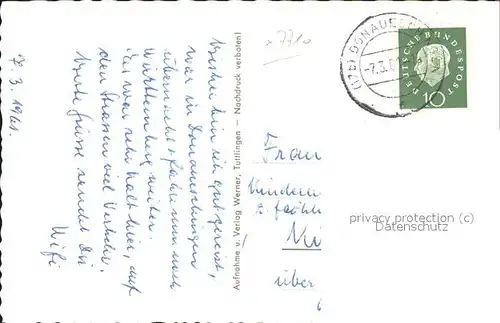 7. 3. 1961.
Bisher bin ich gut gereist,
war in Donaueschingen
übernachtet fahre nun nach
Württemberg weiter.
Es war sehr kalt hier, auf
den Strassen viel Verkehr.
Beste Grüsse sendet Dir
Aufnahme u. Verlag Werner, Tuttlingen — Nachdruck verboten!
x7710
(17b) DONAUESCH
-7.3.6
DEUTSCHE BUNDESPOST
10
Frau
Kinderm
z. fröhl
über
privacy protection (c)
Datenschutz